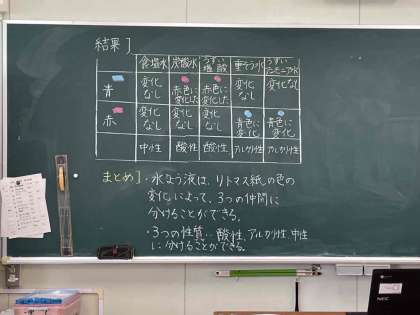 結果〕
食塩水 炭酸水 うすい塩酸 重そう水 うすいアンモニア水
青 変化なし 赤色に変化した 赤色に変化した 変化なし 変化なし
赤 変化なし 変化なし 変化なし 青色に変化 青色に変化
中性 酸性 酸性 アルカリ性 アルカリ性
まとめ〕・水よう液は、リトマス紙の色の
変化によって、3つの仲間に
分けることができる。
・3つの性質…酸性、アルカリ性、中性
に分けることができる。
NEC